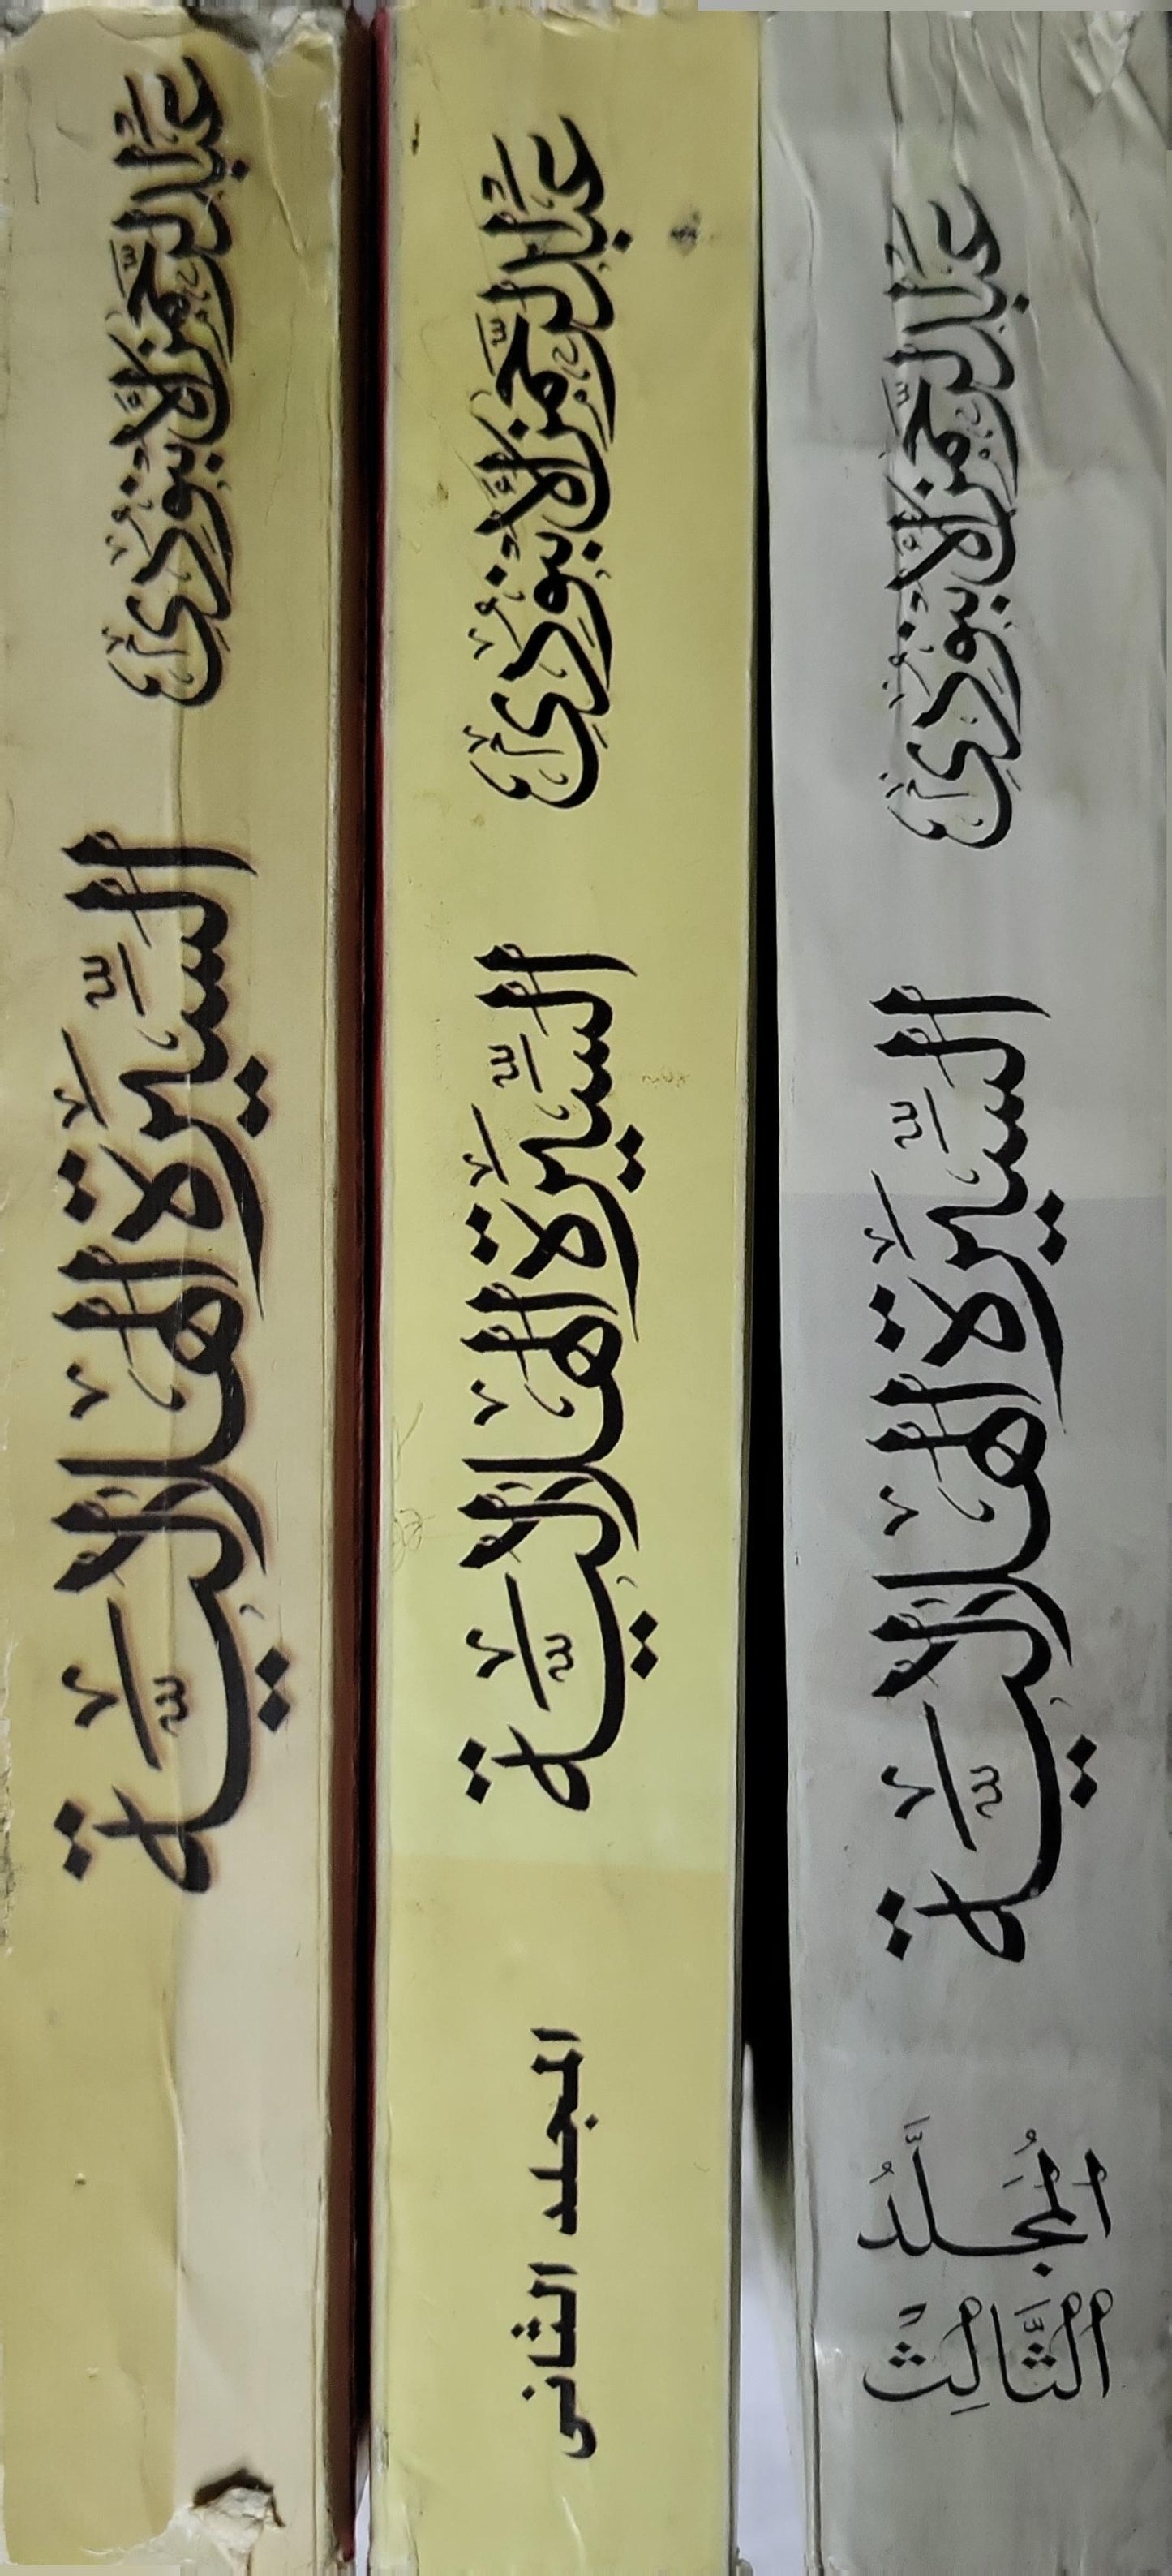 عبد الرحمن الأبنودي
السِّيرَة الهِلَاليَّة
عبد الرحمن الأبنودي
السِّيرَة الهِلَاليَّة
المجلد الثانى
عبد الرحمن الأبنودي
السِّيرَة الهِلَاليَّة
المُجَلَّدُ
الثَّالِثْ